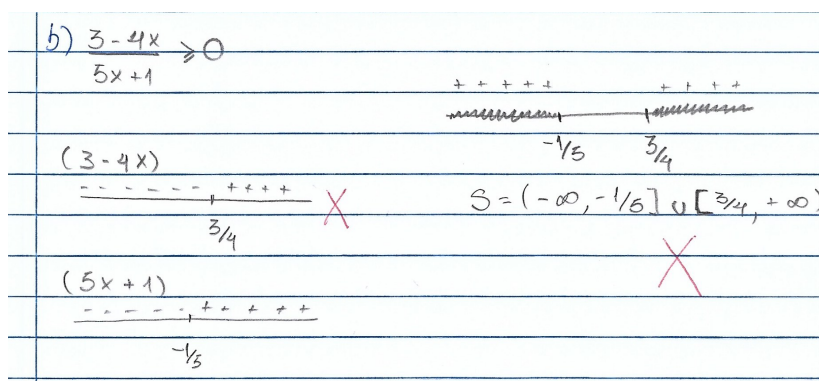 b) 3-4x / 5x+1 ≥ 0
(3-4x)
- - - - - - + + + +
3/4
(5x+1)
- - - - - + + + + +
-1/5
+ + + + + + + + +
-1/5 3/4
S = (-∞, -1/5] ∪ [3/4, +∞)